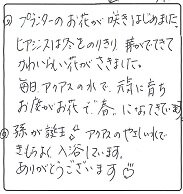 ② プランターのお花が咲きはじめました。
ヒアシンスは冬をのりきり芽がでてきて
かわいらしい花がさきました。
毎日アクアスの水で、元気に育ち
お庭がお花で春になってきています
③ 孫が誕生 アクアスのやさしい水で
きもちよく入浴しています。
ありがとうございます